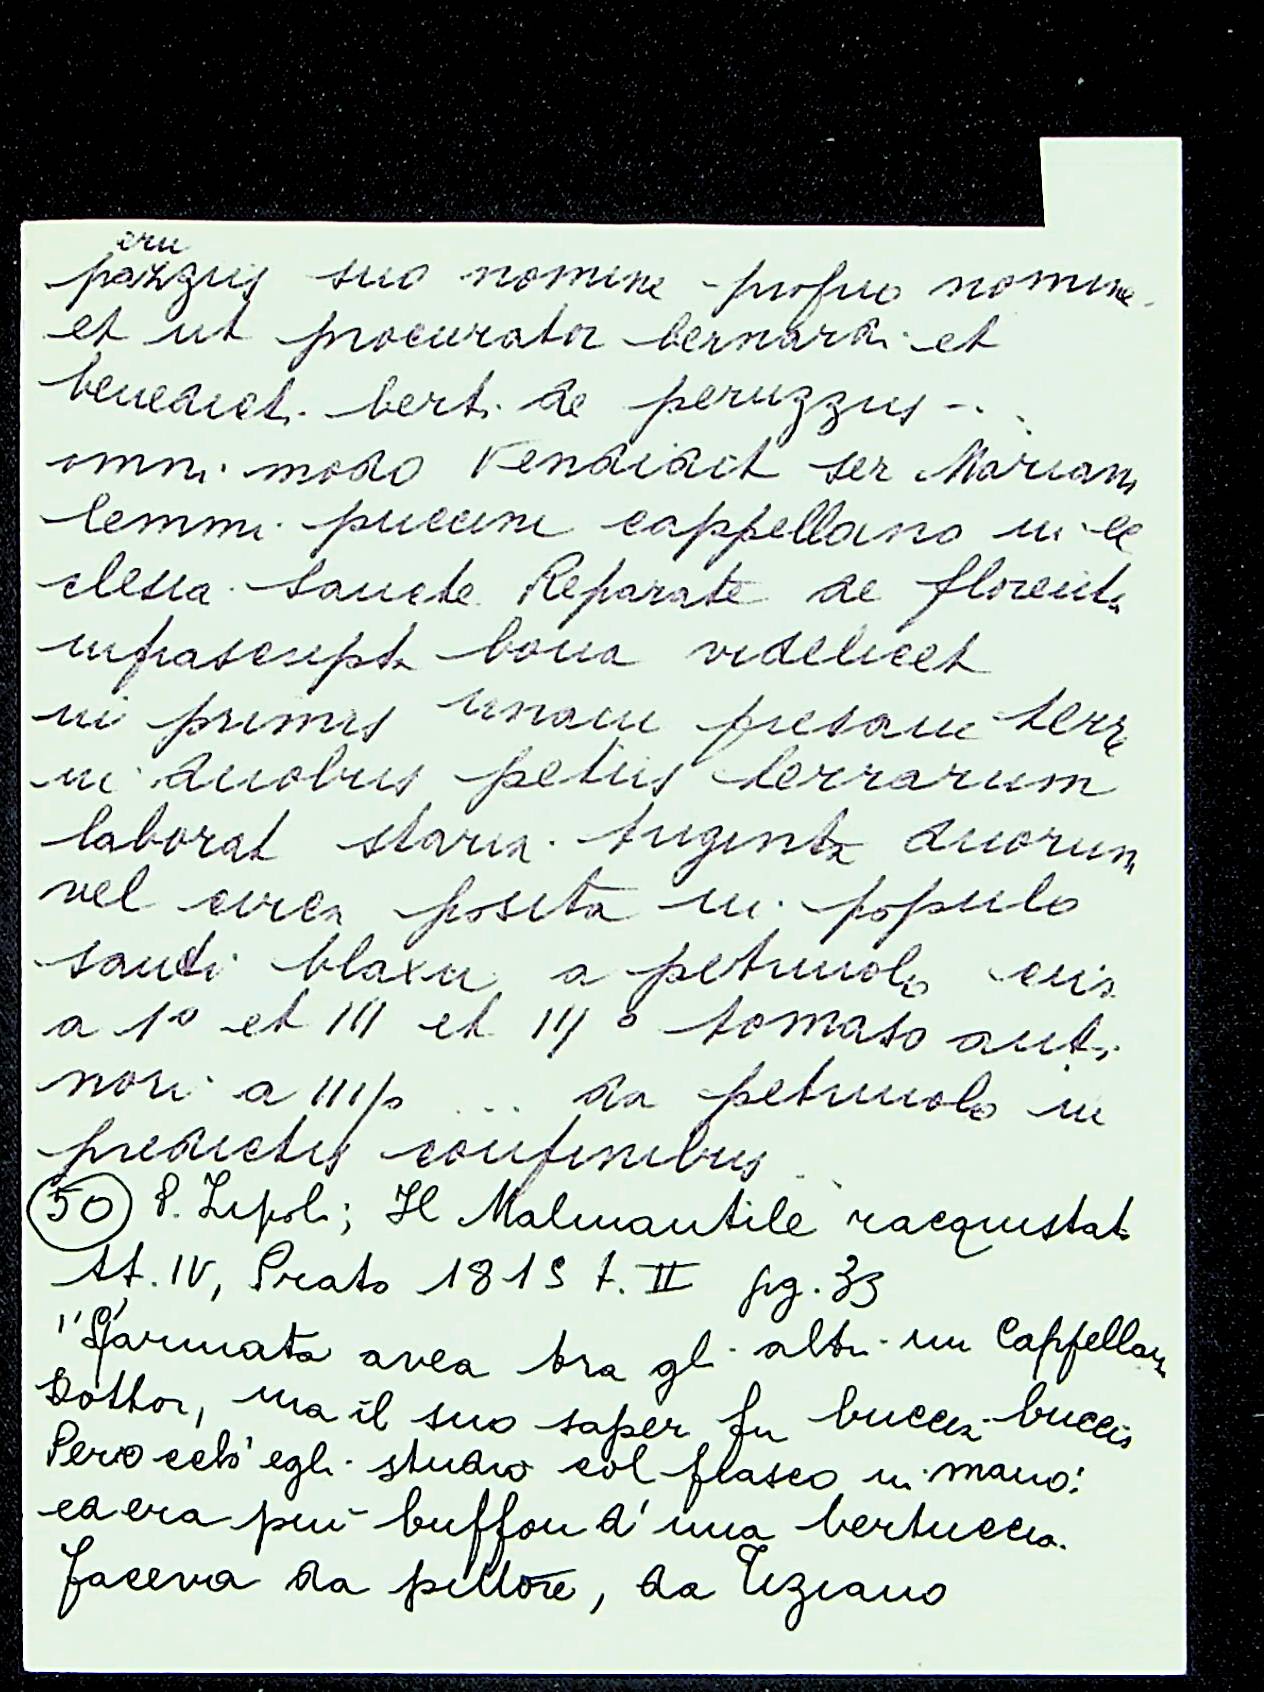 eru
pazzus suo nomine proprio nomine
et ut procurator bernardi et
benedicti berti de peruzzus - . .
omni modo Vendidit ser Mariani
lemmi puccini cappellano in ec
clesia sancte Reparate de florenti
infrascripta bona videlicet
in primis unam presam terre
in duobus petiis terrarum
laborat starin. triginta duorum
vel circa posita in populo
santi blaxii a petriuolo cui
a 1° et III et III ° tomaso anti
nori a IIII° ... da petriuolo in
predictis confinibus . .
(50) P. Lipoli; Il Malmantile racquistato
st. IV, Prato 1815 t. II pg. 33
"Sfarmata avea tra gli altri un Cappellan
Dottor, ma il suo saper fu buccia buccia
Perocchè egli studiò col fiasco in mano:
ed era più buffon d'una bertuccia.
faceva da pittore, da Tiziano